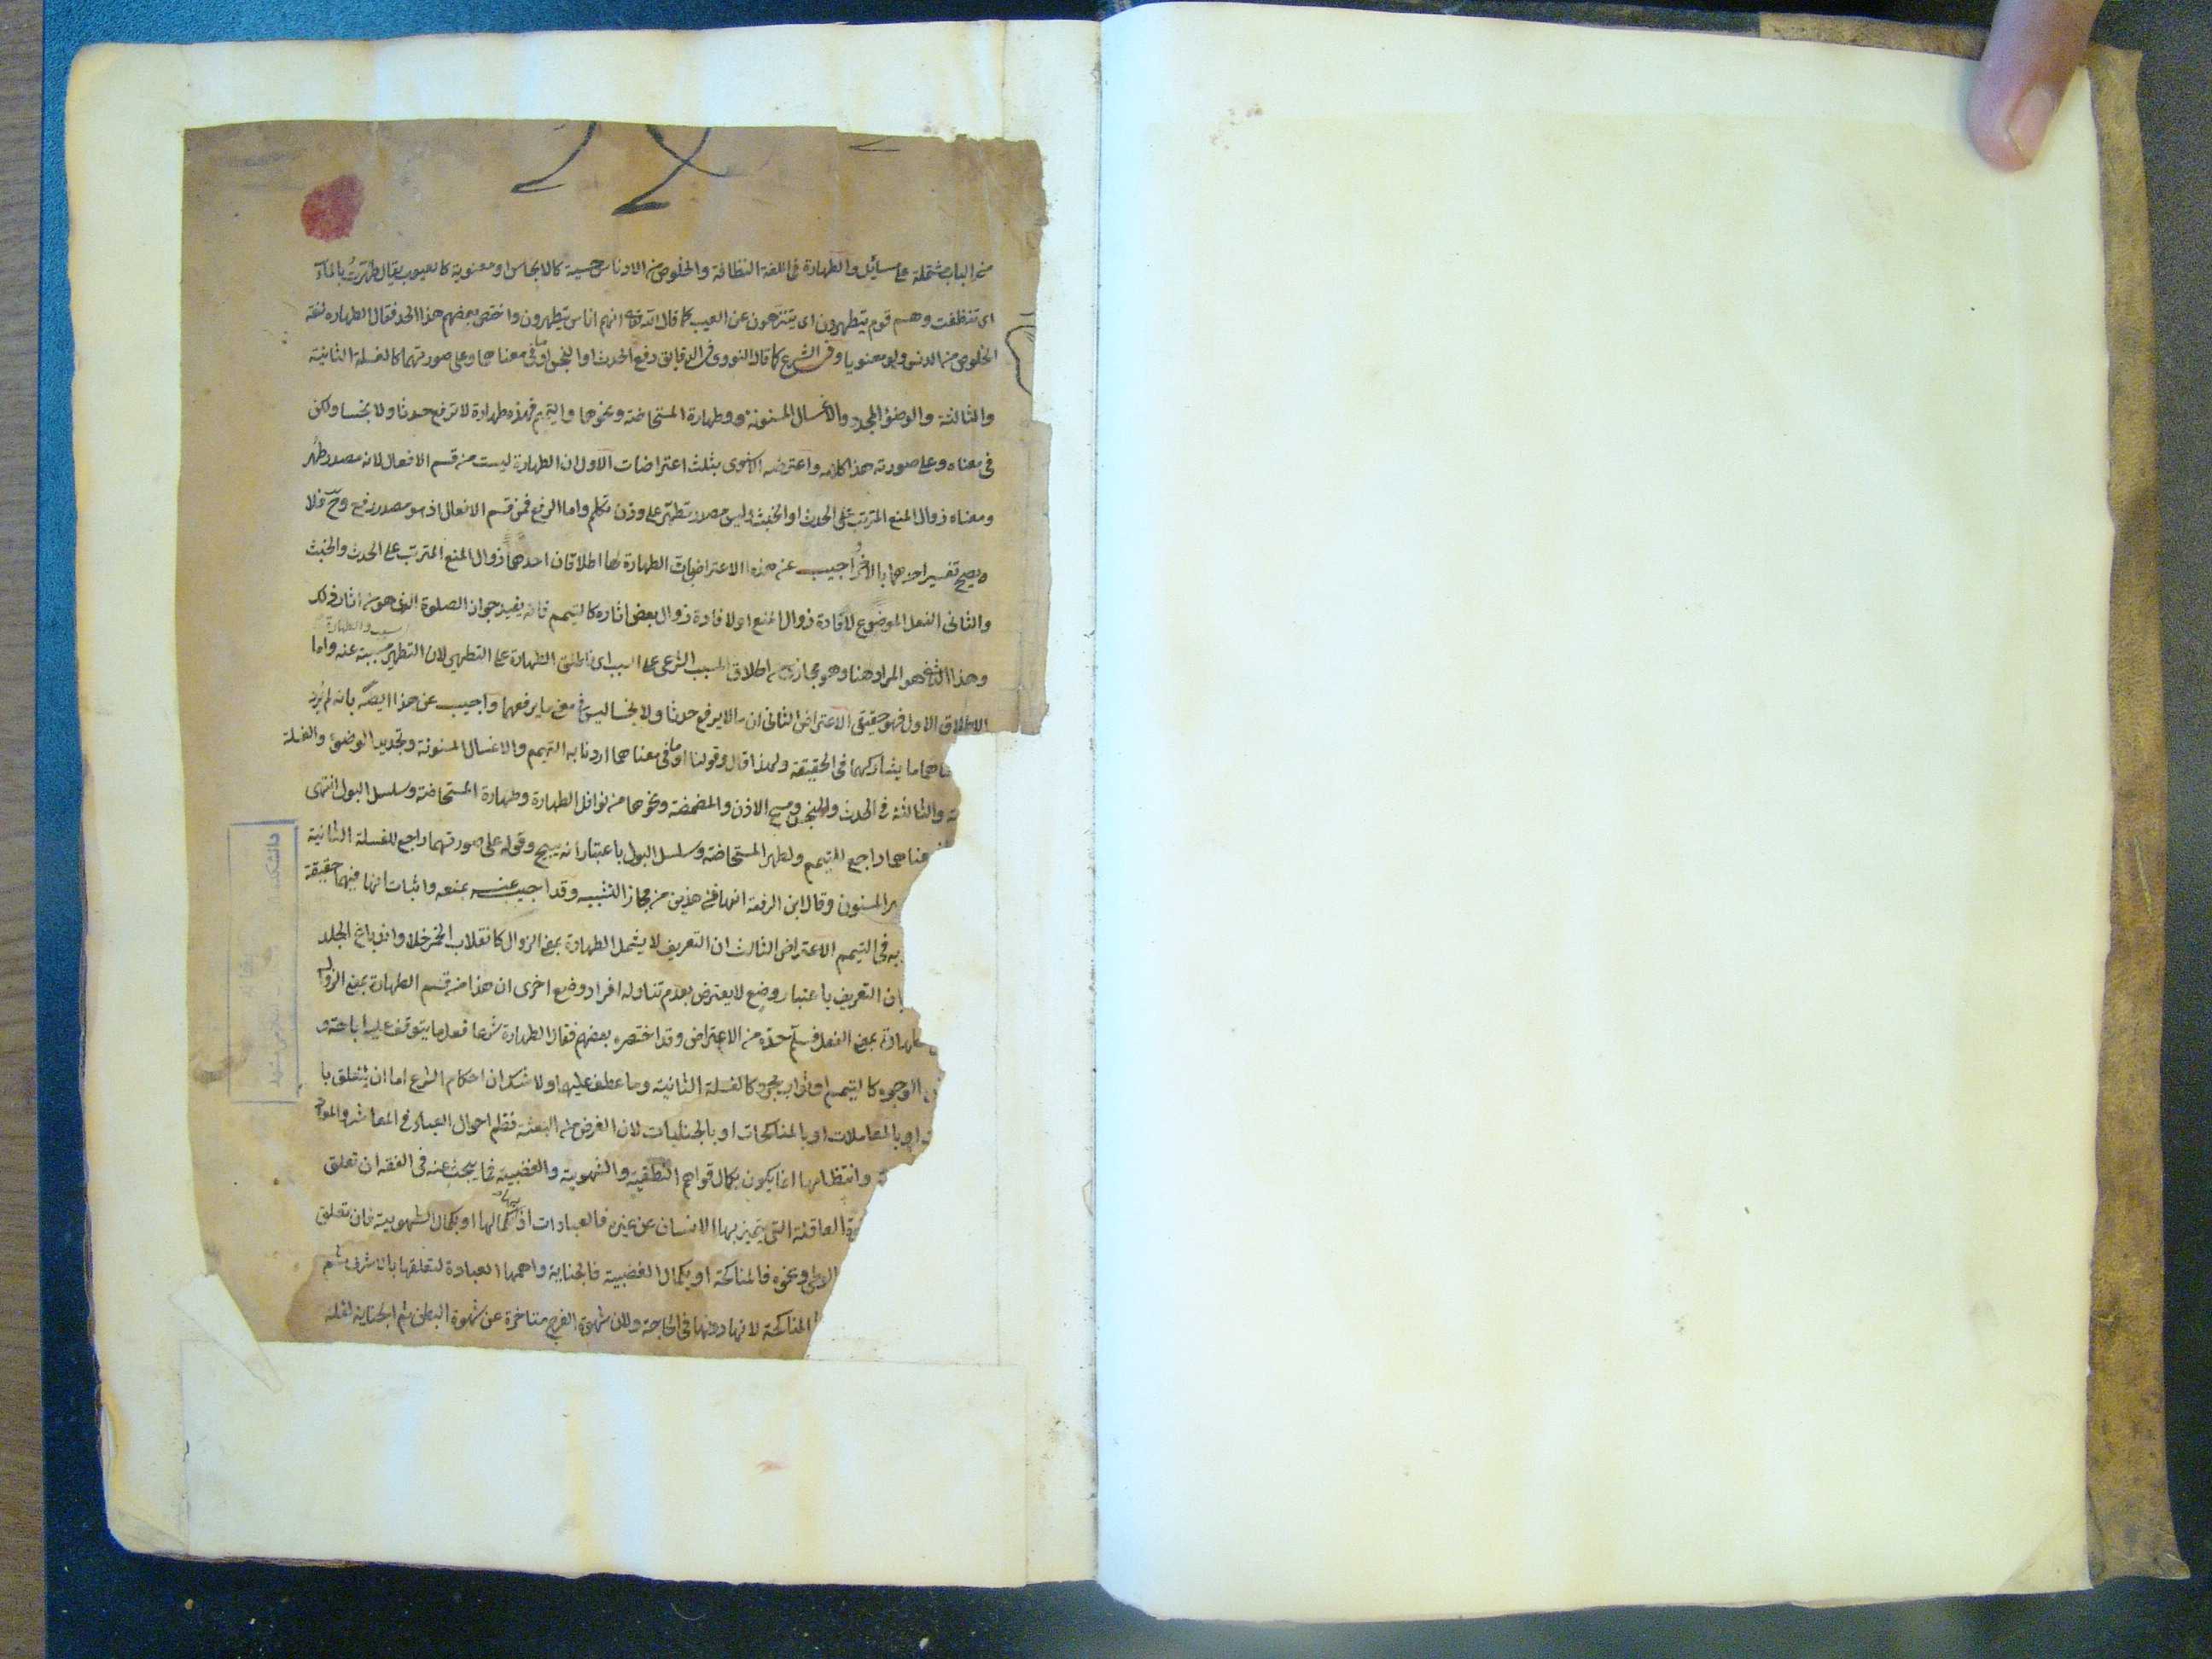 من الباب مشتملة على مسائل والطهارة فى اللغة النظافة والخلوص من الادناس حسية كالانجاس او معنوية كالعيوب يقال طهّرتُ بالماء
اى تنظفت وهم قوم يتطهرون اى يتنزهون عن العيب كما قال الله تعالى انهم اناس يتطهرون واختص بعضهم هذا الحد فقال الطهارة لغة
الخلوص من الدنس ولو معنويا وفى الشرع كما قال النووى فى الدقايق رفع الحدث او النجس او ما فى معناهما وعلى صورتهما كالغسلة الثانية
والثالثة والوضوء المجدد والاغسال المسنونة وطهارة المستحاضة ونحوها والتيمم فهذه طهارة لا ترفع حدثا ولا نجسا ولكن
فى معناه وعلى صورته هذا كلامه واعترضه الاسنوى بثلث اعتراضات الاول ان الطهارة ليست من قسم الافعال لانه مصدر طهُر
ومعناه زوال المنع المترتب على الحدث او الخبث وليس مصدر تطهّر على وزن تكلم واما الرفع فمن قسم الافعال اذ هو مصدر رفع وح فلا
يصح تفسير احدهما بالاخر واجيب عن هذه الاعتراض بان الطهارة لها اطلاقان احدهما زوال المنع المترتب على الحدث والخبث
والثانى الفعل الموضوع لافادة زوال المنع او لافادة زوال بعض اثاره كالتيمم فانه يفيد جواز الصلوة الذى هو من اثار ذلك
وهذا الثانى هو المراد هنا وهو مجازى من اطلاق المسبب الشرعى على السبب اى اطلق الطهارة على التطهير لان التطهير سبب والطهارة مسببة عنه واما
الاطلاق الاول فهو حقيقى الاعتراض الثانى ان ما لا يرفع حدثا ولا نجسا ليس فى معنى ما يرفعهما واجيب عن هذا ايضا بانه لم يُرد
ما يشاركهما فى الحقيقة ولهذا قال وقولنا او ما فى معناهما اردنا به التيمم والاغسال المسنونة وتجديد الوضوء والغسلة
والثالثة فى الحدث والنجس ومسح الاذن والمضمضة ونحوها من نوافل الطهارة وطهارة المستحاضة وسلسل البول انتهى
راجع للتيمم ولطهر المستحاضة وسلسل البول باعتبار انه يبيح وقوله على صورتهما راجع للغسلة الثانية
المسنون وقال ابن الرفعة انها فى هذين من مجاز التشبيه وقد اجيب عنه بمنعه واثبات انها فيهما حقيقة
به فى التيمم الاعتراض الثالث ان التعريف لا يشمل الطهارة بمعنى الزوال كانقلاب الخمر خلا واندباغ الجلد
ان التعريف باعتبار وضع لا يعترض بعدم تناوله افراد وضع اخرى ان هذا من قسم الطهارة بمعنى الزوال
بمعنى الفعل فسلم حده من الاعتراض وقد اختصره بعضهم فقال الطهارة شرعا فعل ما يتوقف عليه اباحة و
الوجوه كالتيمم او ثواب مجرد كالغسلة الثانية وما عطف عليها ولا شك ان احكام الشرع اما ان يتعلق با
او بالمعاملات او بالمناكحات او بالجنايات لان الغرض من البعثة نظم احوال العباد فى المعاش والمعاد
وانتظامها انما يكون بكمال قواهم النطقية والشهوية والغضبية فما يبحث عنه فى الفقه ان تعلق
العاقلة التى يتميز بها الانسان عن غيره فالعبادات اذ بها كمالها او بكمال الشهوية فان تعلق
ونحوه فالمناكحة او بكمال الغضبية فالجناية واهمها العبادة لتعلقها بالاشرف ثم
المناكحة لانها دونها فى الحاجة ولان شهوة الفرج متاخرة عن شهوة البطن ثم الجناية لقلة
دانشكده